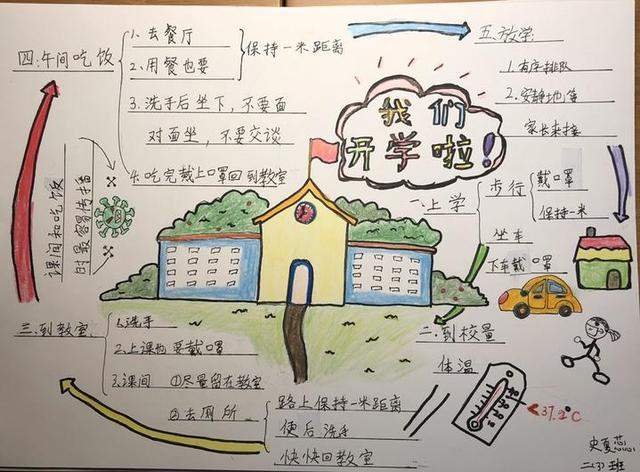 我们
开学啦!
一、上学
步行
戴口罩
保持一米
坐车
下车戴口罩
二、到校量
体温
<37.2℃
三、到教室
1.洗手
2.上课也要戴口罩
3.课间
①尽量留在教室
②去厕所
路上保持一米距离
便后洗手
快快回教室
四、午间吃饭
1.去餐厅
2.用餐也要
保持一米距离
3.洗手后坐下,不要面
对面坐,不要交谈
4.吃完戴上口罩回到教室
课间和吃饭
时最容易传播
五、放学:
1.有序排队
2.安静地等
家长来接
史夏芯
二(3)班